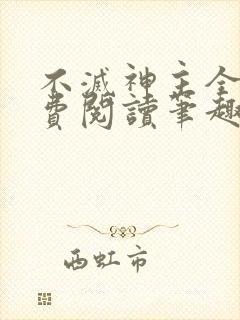 不滅神主全
費閱讀筆趣
西虹市